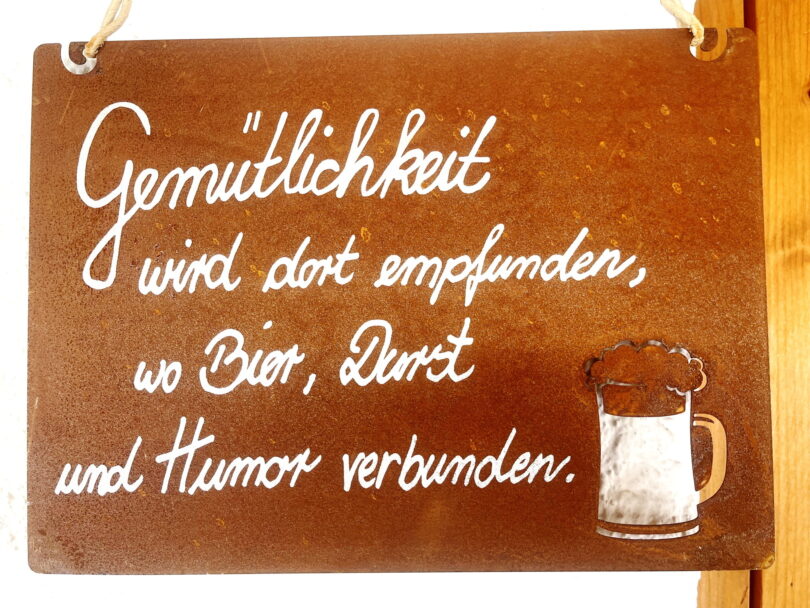 Gemütlichkeit
wird dort empfunden,
wo Bier, Durst
und Humor verbunden.